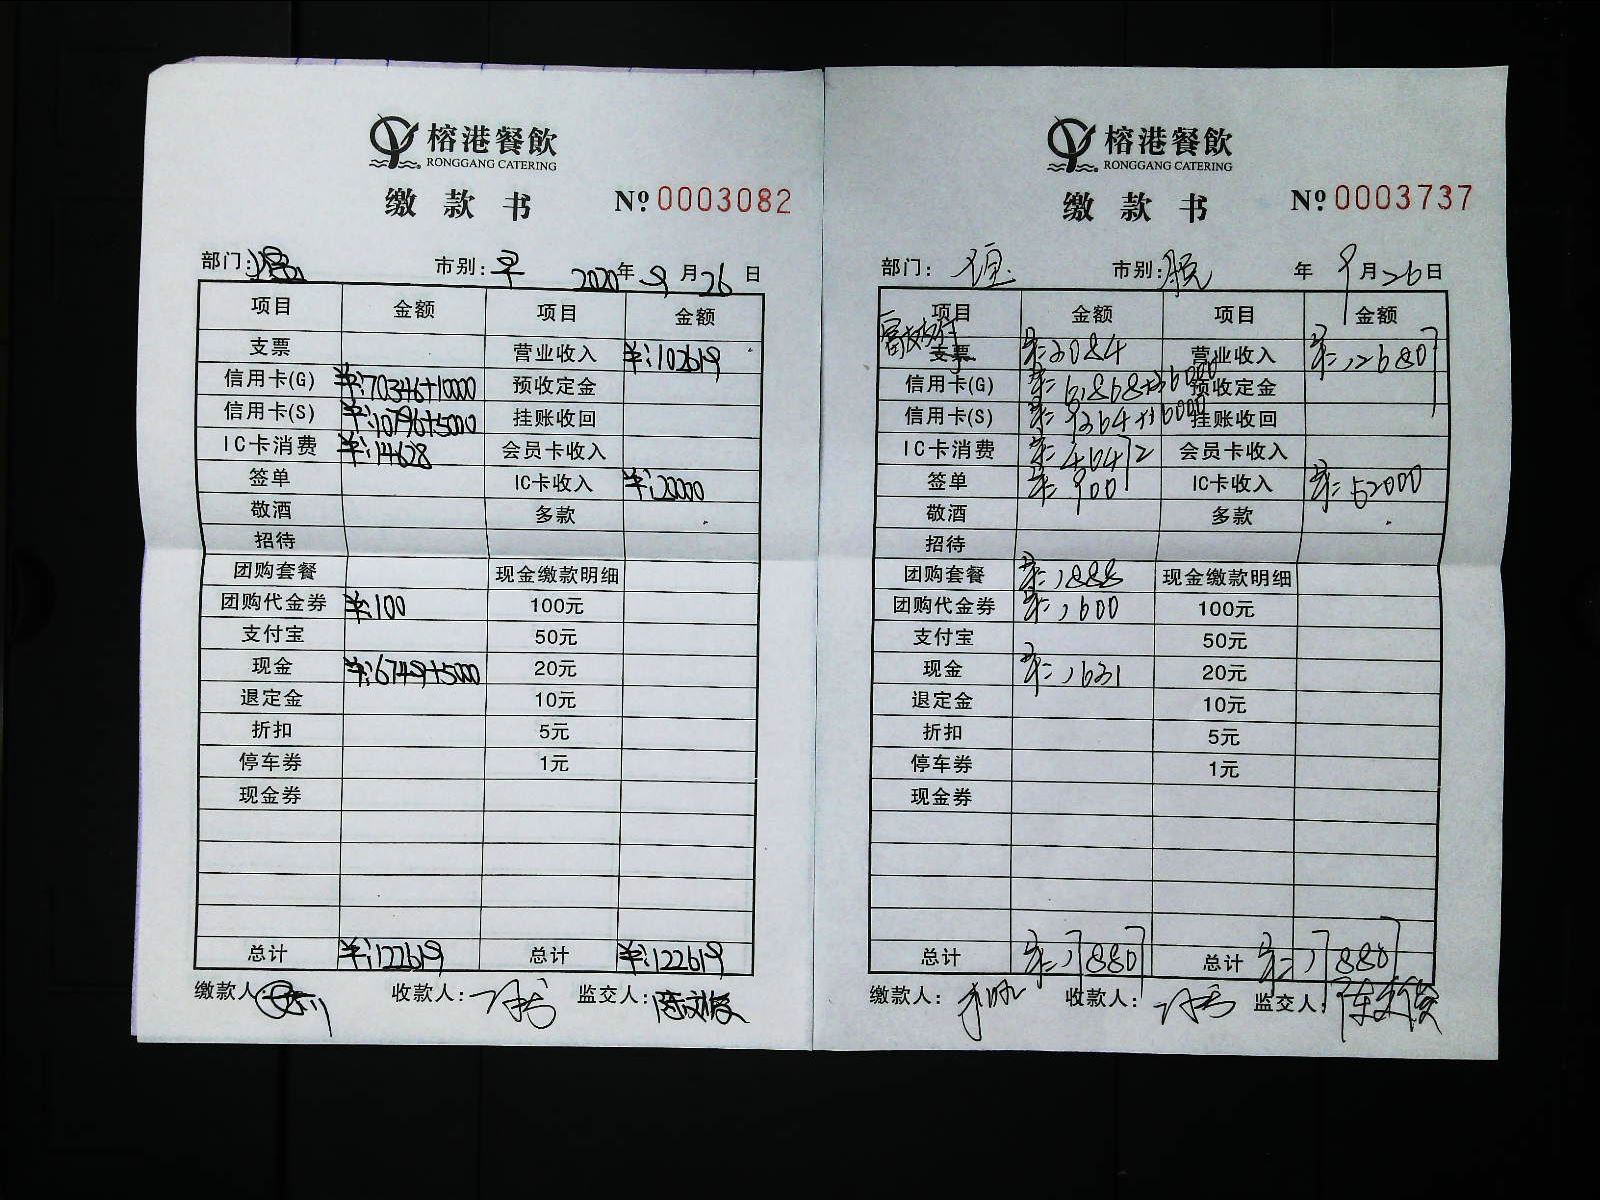 榕港餐飲 RONGGANG CATERING
缴款书 Nº 0003082
部门: 市别: 早 2020年 9月 26日
项目 金额 项目 金额
支票 营业收入 ¥:102619
信用卡(G) ¥:70346+10000 预收定金
信用卡(S) ¥:10796+5000 挂账收回
IC卡消费 ¥:14628 会员卡收入
签单 IC卡收入 ¥:20000
敬酒 多款
招待
团购套餐 现金缴款明细
团购代金券 ¥:100 100元
支付宝 50元
现金 ¥:6749+5000 20元
退定金 10元
折扣 5元
停车券 1元
现金券
总计 ¥:122619 总计 ¥:122619
缴款人: 收款人: 监交人:
榕港餐飲 RONGGANG CATERING
缴款书 Nº 0003737
部门: 市别: 晚 年 9月 26日
项目 金额 项目 金额
支票 营业收入 ¥:126807
信用卡(G) 预收定金
信用卡(S) 挂账收回
IC卡消费 ¥:40472 会员卡收入
签单 ¥:900 IC卡收入 ¥:52000
敬酒 多款
招待
团购套餐 ¥:1888 现金缴款明细
团购代金券 ¥:1600 100元
支付宝 50元
现金 ¥:1631 20元
退定金 10元
折扣 5元
停车券 1元
现金券
总计 ¥:178807 总计 ¥:178807
缴款人: 收款人: 监交人: